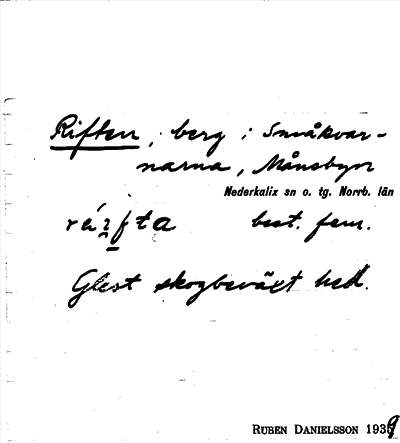 Riften, berg i Småkvar-
narna, Månsbyn
Nederkalix sn o. tg. Norrb. län
best. fem.
Glest skogbeväxt hed.
RUBEN DANIELSSON 1939